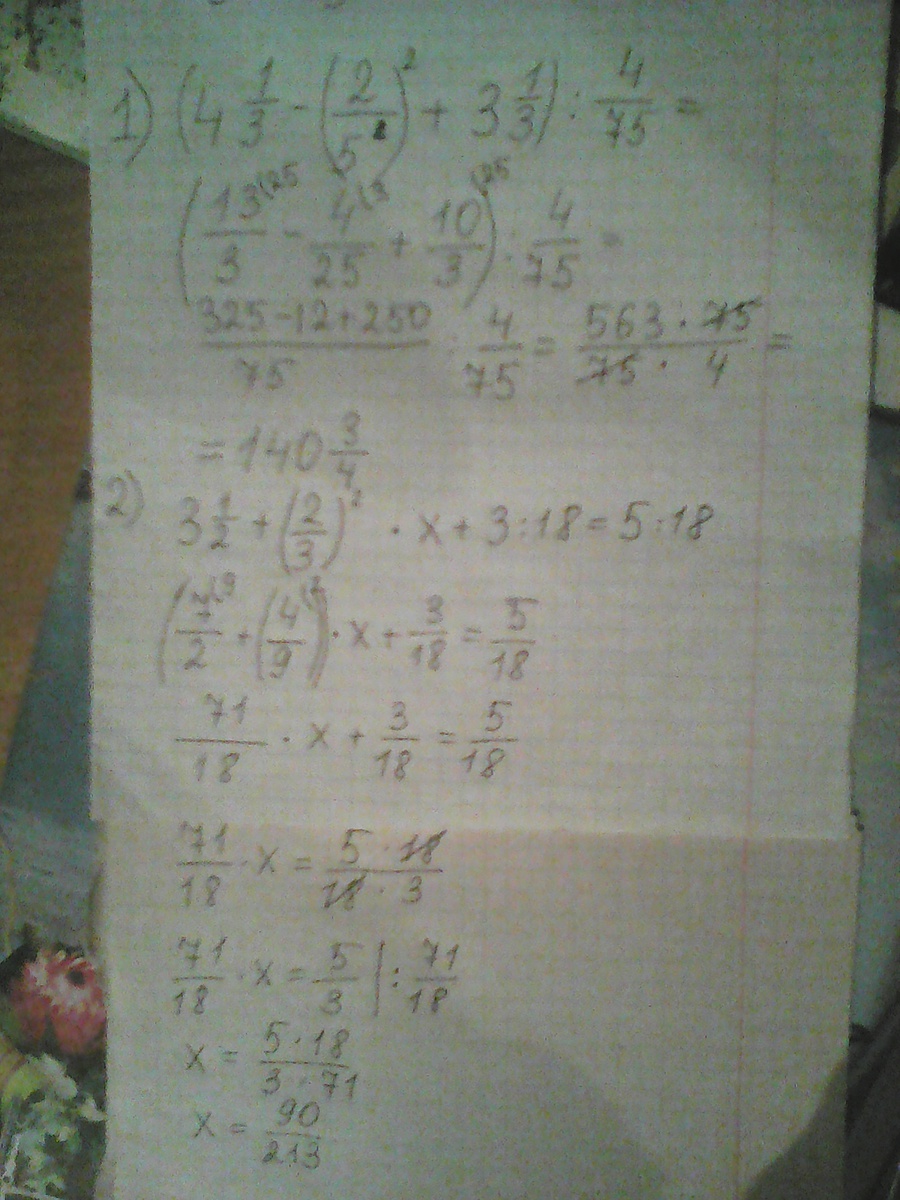 1) (4 1/3 - (2/5)² + 3 1/3) : 4/75 =
(13/3 (25 - 4/25 (3 + 10/3 (25) : 4/75 =
325-12+250/75 : 4/75 = 563 · 75/75 · 4 =
= 140 3/4
2) 3 1/2 + (2/3)² · x + 3 : 18 = 5 : 18
(7/2 (9 + (4/9 (2)) · x + 3/18 = 5/18
71/18 · x + 3/18 = 5/18
71/18 · x = 5 · 18/18 · 3
71/18 · x = 5/3 | : 71/18
x = 5 · 18/3 · 71
x = 90/213